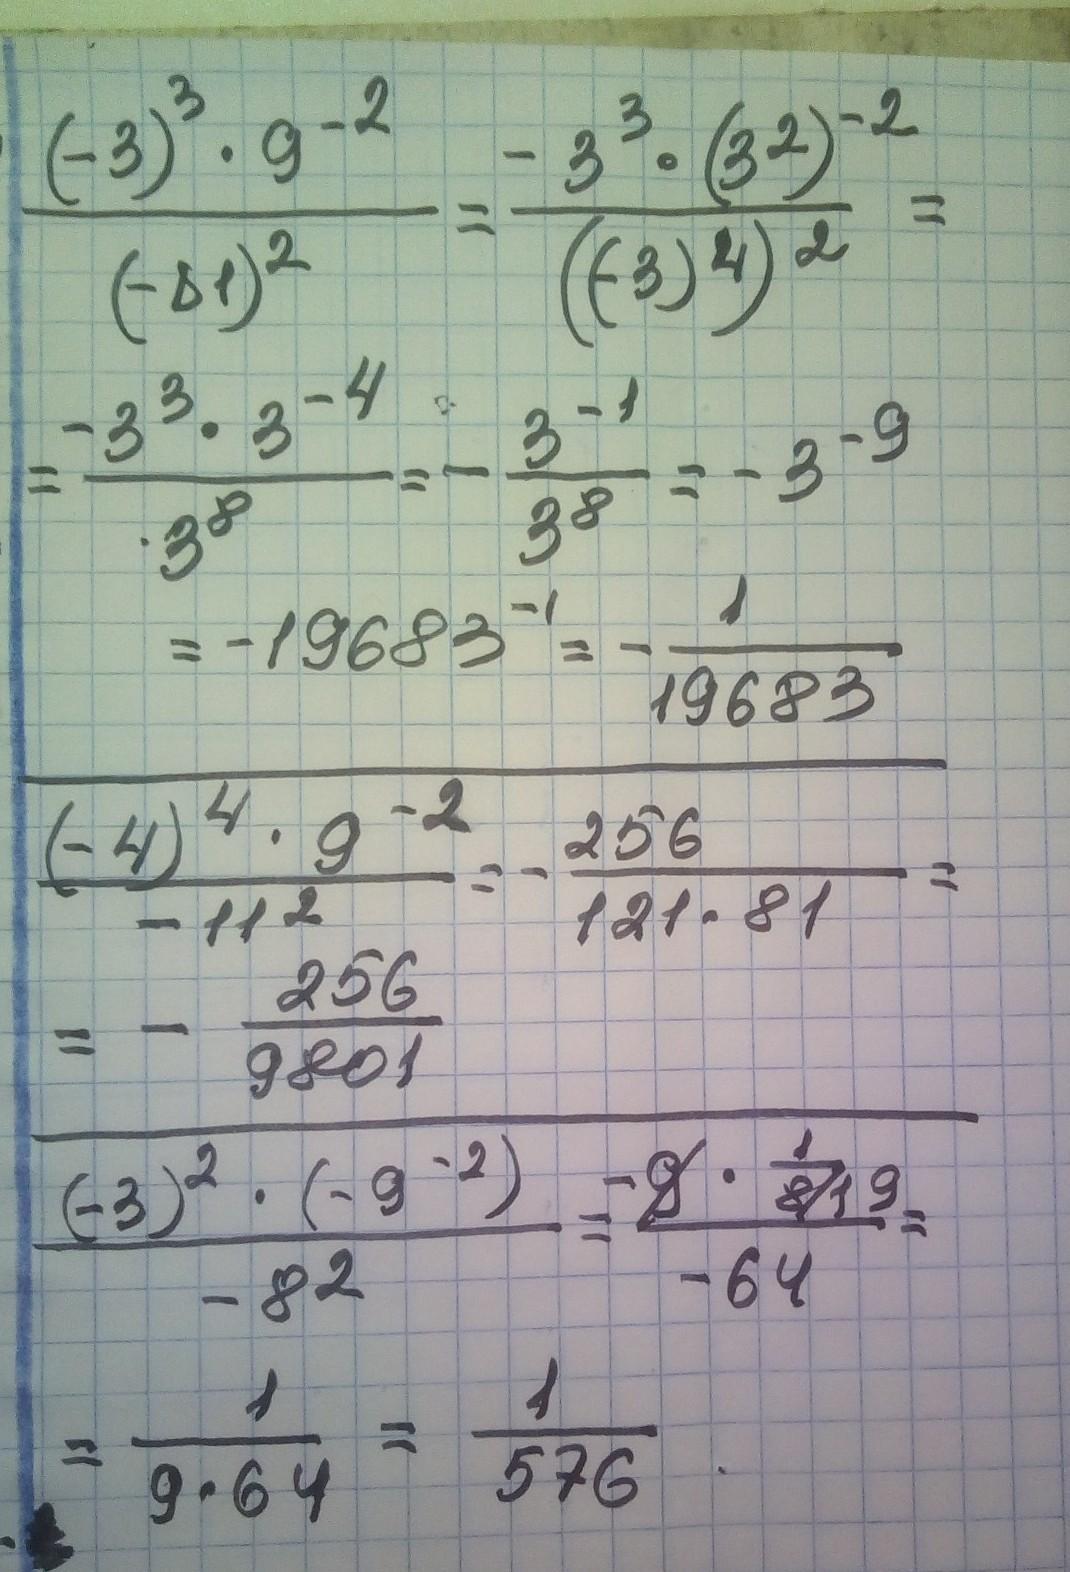 (-3)³ · 9⁻² / (-81)² = -3³ · (3²)⁻² / ((-3)⁴)² =
= -3³ · 3⁻⁴ / 3⁸ = - 3⁻¹ / 3⁸ = -3⁻⁹
= -19683⁻¹ = - 1 / 19683
(-4)⁴ · 9⁻² / -11² = - 256 / 121 · 81 =
= - 256 / 9801
(-3)² · (-9⁻²) / -8² = -9 · 1/81 9 / -64 =
= 1 / 9 · 64 = 1 / 576